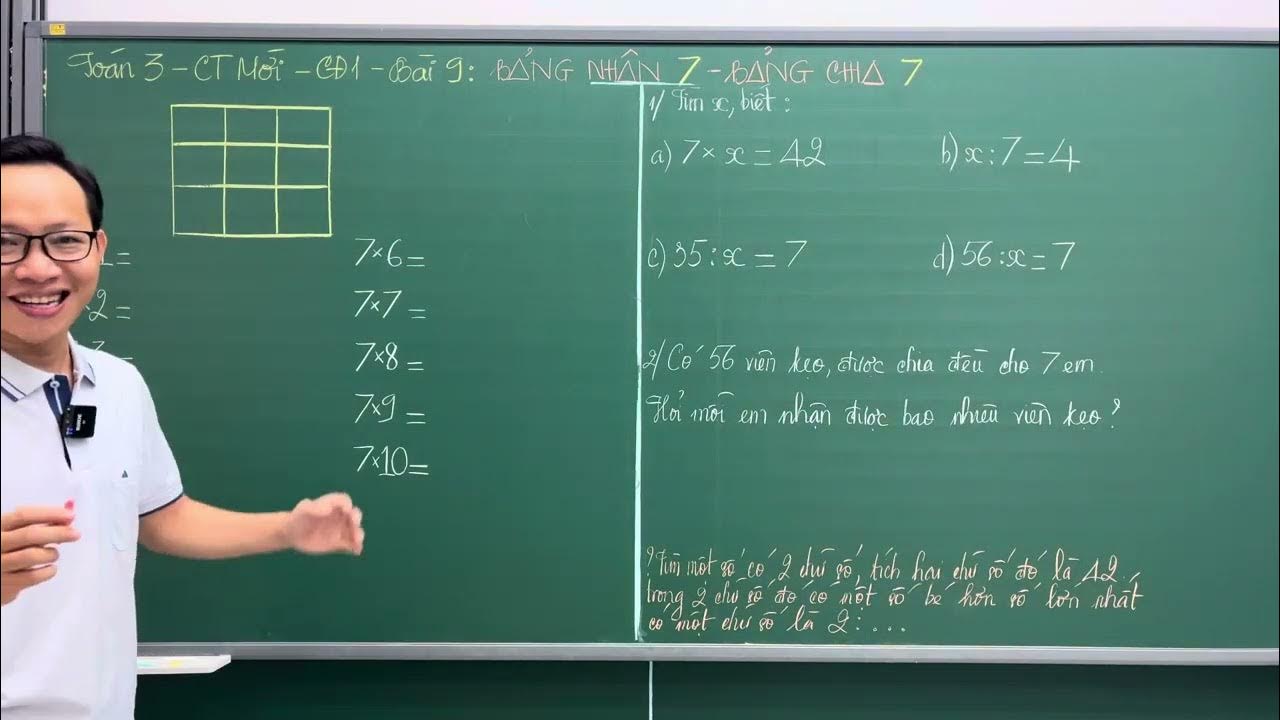 Toán 3 - CT Mới - CĐ1 - Bài 9: BẢNG NHÂN 7 - BẢNG CHIA 7
=
2 =
7×6=
7×7 =
7×8 =
7×9 =
7×10=
1/ Tìm x, biết :
a) 7 × x = 42
b) x : 7 = 4
c) 35 : x = 7
d) 56 : x = 7
2/ Có 56 viên kẹo, được chia đều cho 7 em.
Hỏi mỗi em nhận được bao nhiêu viên kẹo ?
? Tìm một số có 2 chữ số, tích hai chữ số đó là 42.
trong 2 chữ số đó có một số bé hơn số lớn nhất
có một chữ số là 2 : ...